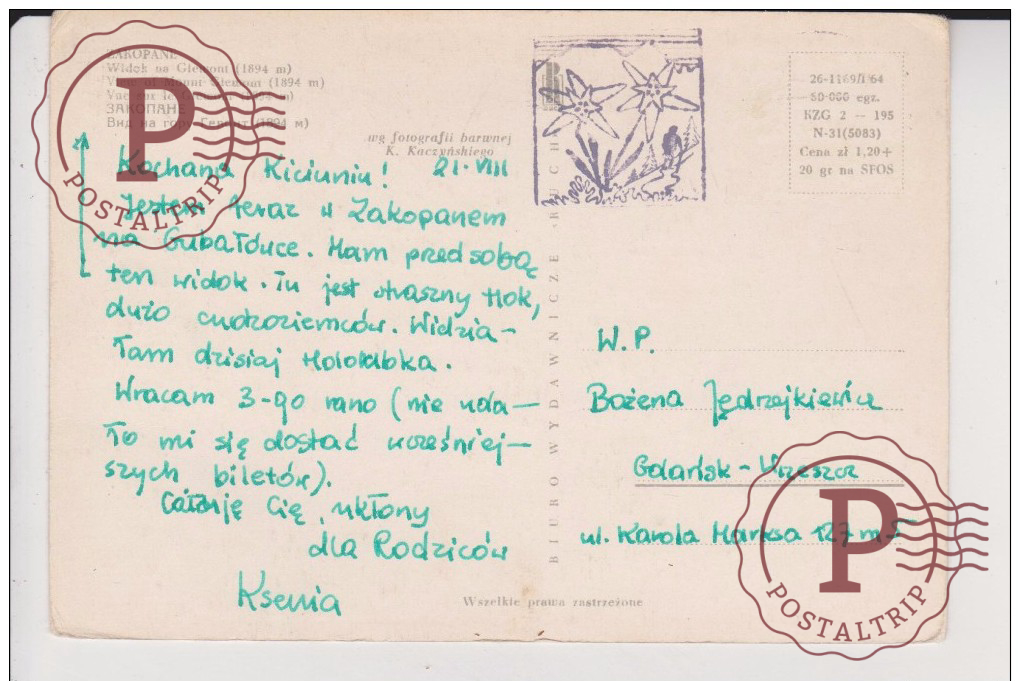 ZAKOPANE
Widok na Giewont (1894 m)
View of Mount Giewont (1894 m)
Vue sur le Giewont (1894 m)
ЗАКОПАНЕ
Вид на гору Гевонт (1894 м)
wg fotografii barwnej
K. Kaczyńskiego
Kochana Kiciuniu! 21.VIII
Jestem teraz w Zakopanem
na Gubałówce. Mam przed sobą
ten widok. Tu jest straszny tłok,
dużo cudzoziemców. Widzia-
łam dzisiaj Hołoubka.
Wracam 3-go rano (nie uda-
ło mi się dostać wcześniej-
szych biletów).
Całuję Cię, ukłony
dla Rodziców
Ksenia
BIURO WYDAWNICZE RUCH
26-1169/I 64
50 000 egz.
KZG 2 — 195
N-31(5083)
Cena zł 1,20+
20 gr na SFOS
W.P.
Bożena Jędrzejkiewicz
Gdańsk-Wrzeszcz
ul. Karola Marksa 127 m 5
Wszelkie prawa zastrzeżone
P
POSTALTRIP
P
POSTALTRIP